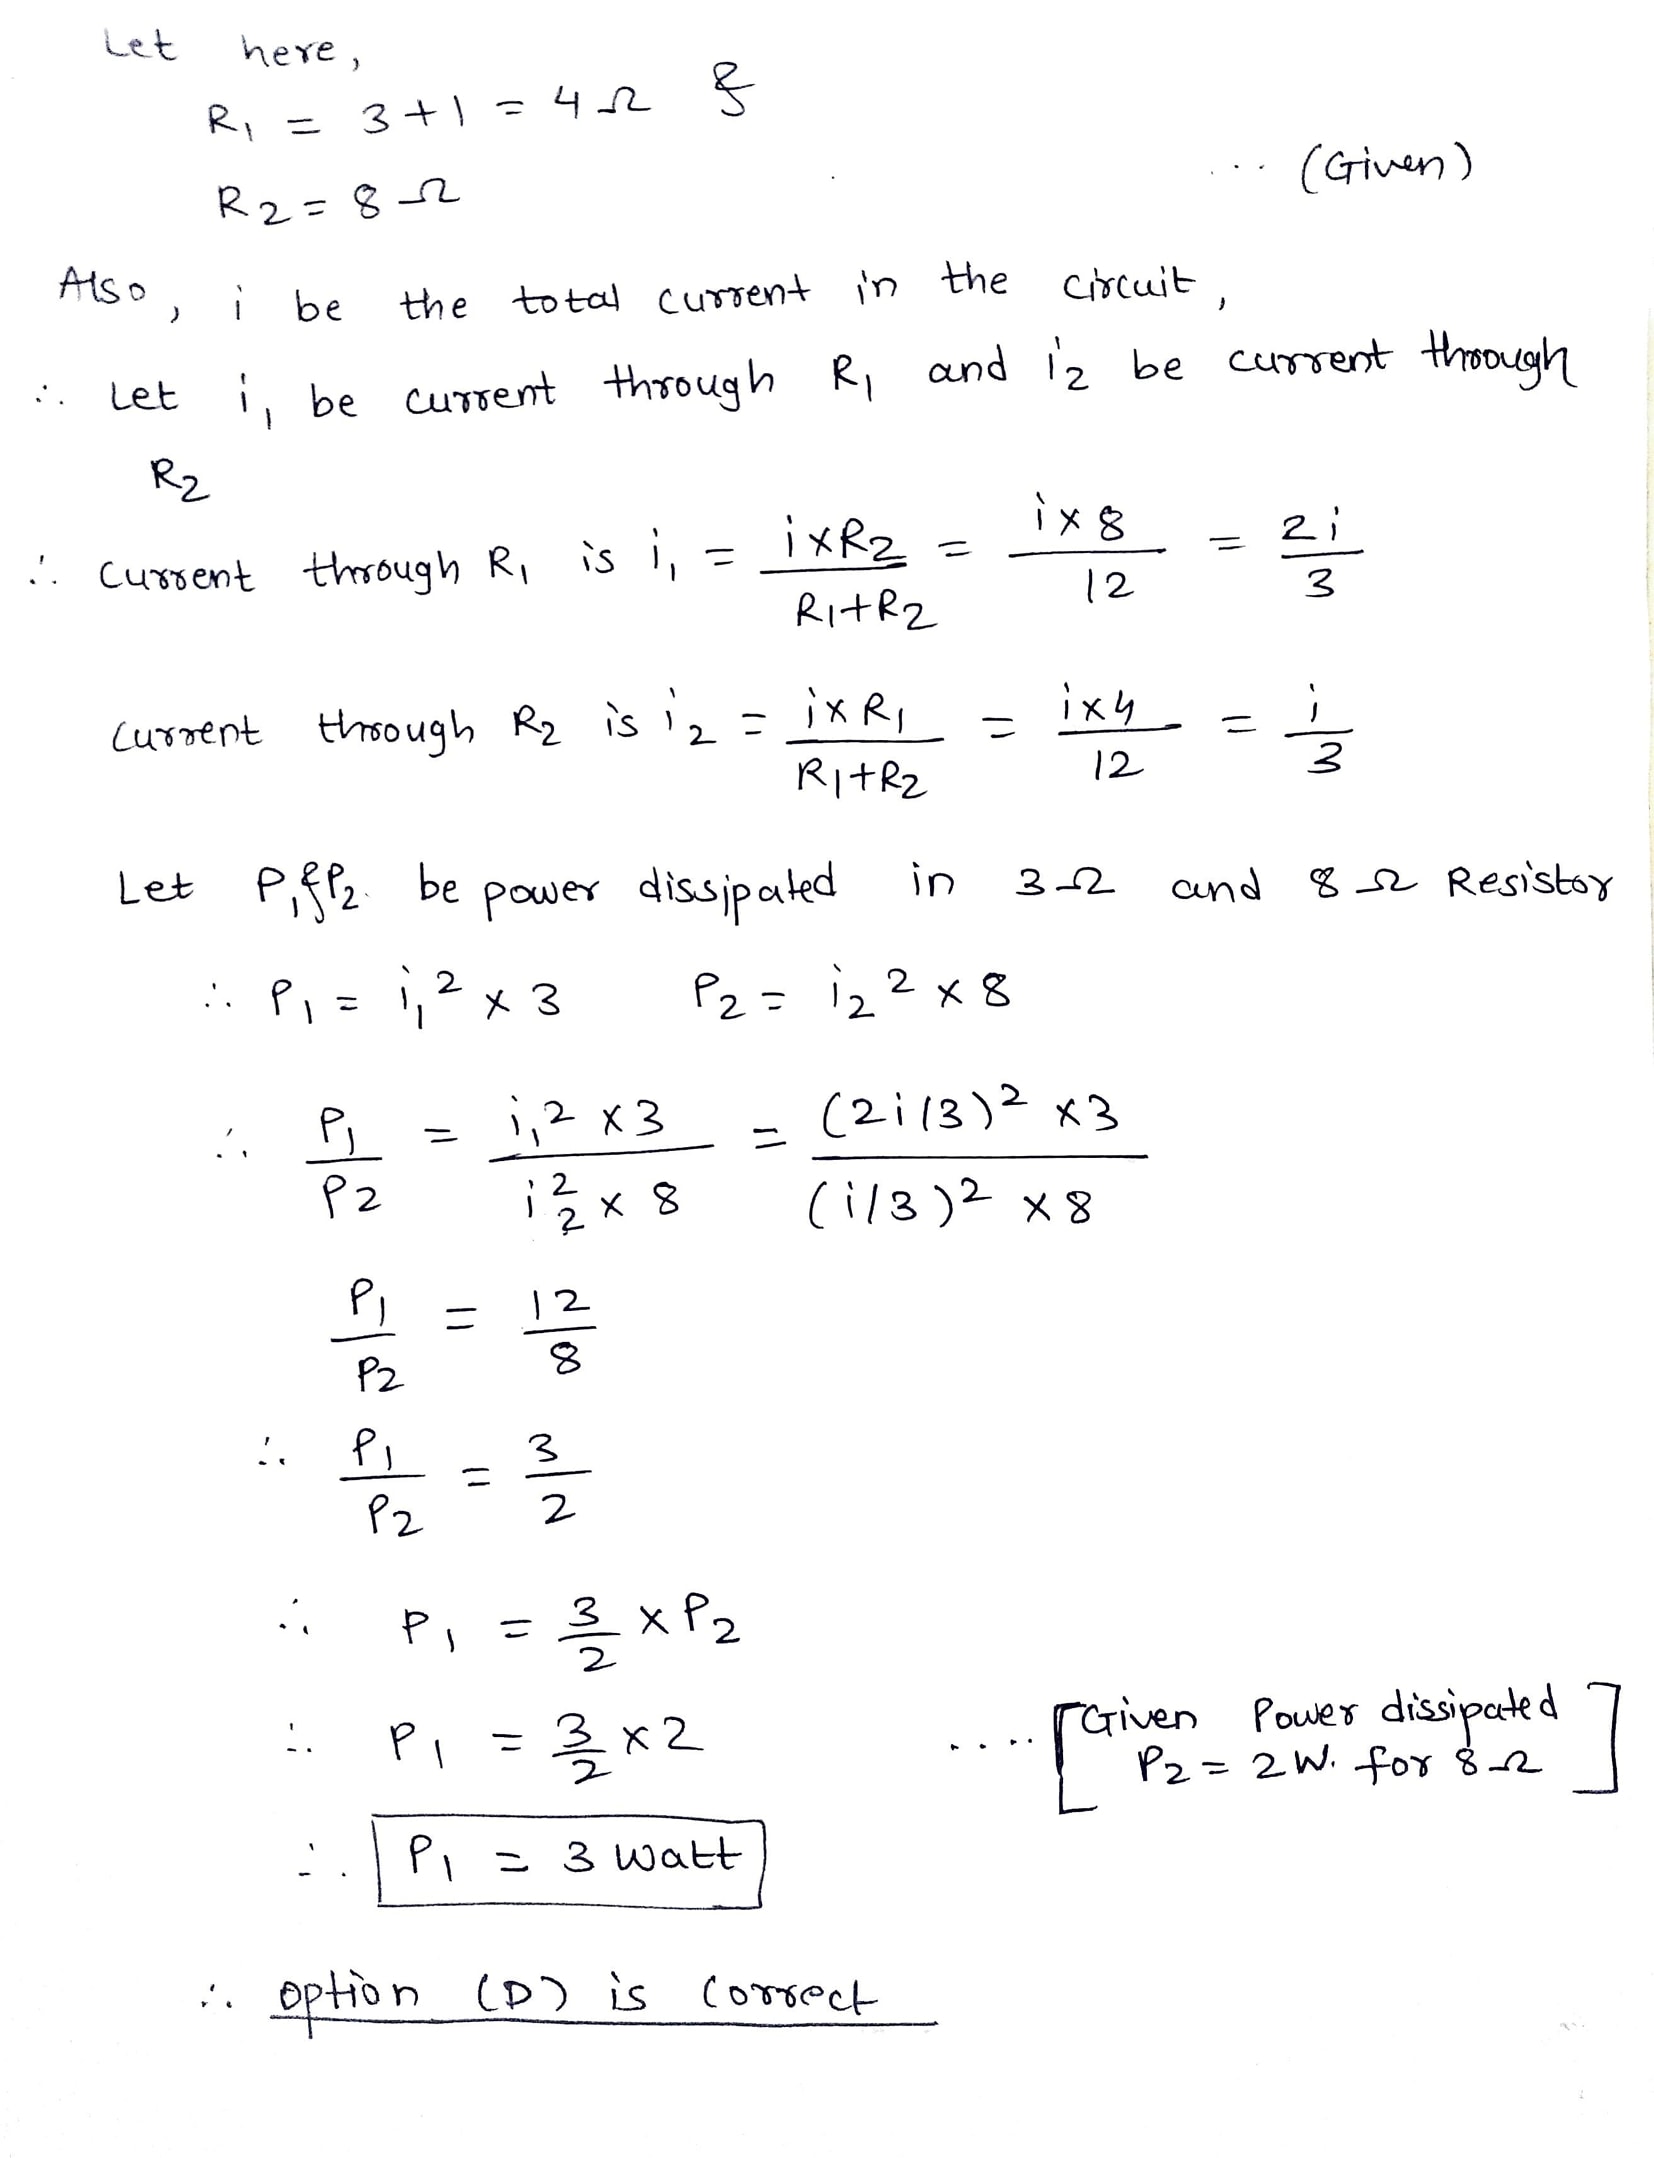 Let here,
R₁ = 3+1 = 4Ω &
... (Given)
R₂ = 8Ω
Also, i be the total current in the circuit,
∴ Let i₁ be current through R₁ and i₂ be current through
R₂
∴ current through R₁ is i₁ = i×R₂/R₁+R₂ = i×8/12 = 2i/3
current through R₂ is i₂ = i×R₁/R₁+R₂ = i×4/12 = i/3
Let P₁&P₂ be power dissipated in 3Ω and 8Ω Resistor
∴ P₁ = i₁² × 3 P₂ = i₂² × 8
∴ P₁/P₂ = i₁² × 3/i₂² × 8 = (2i/3)² × 3/(i/3)² × 8
P₁/P₂ = 12/8
∴ P₁/P₂ = 3/2
∴ P₁ = 3/2 × P₂
∴ P₁ = 3/2 × 2 .... [Given Power dissipated
P₂ = 2 W. for 8Ω]
∴ P₁ = 3 watt
∴ option (D) is correct